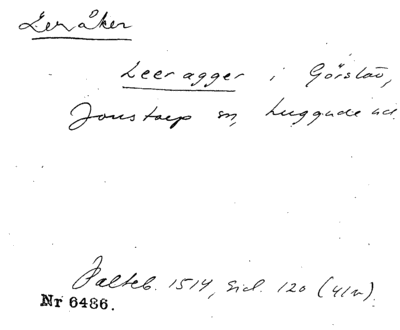 Leråker
Leeragger i Görslöv,
Jonstorp sn, Luggude hd.
Palteb. 1514, sid. 120 (41r).
Nr 6486.